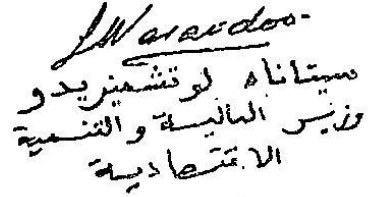 سيتاناه لوتشمينريدو
وزير المالية والتنمية
الاقتصادية